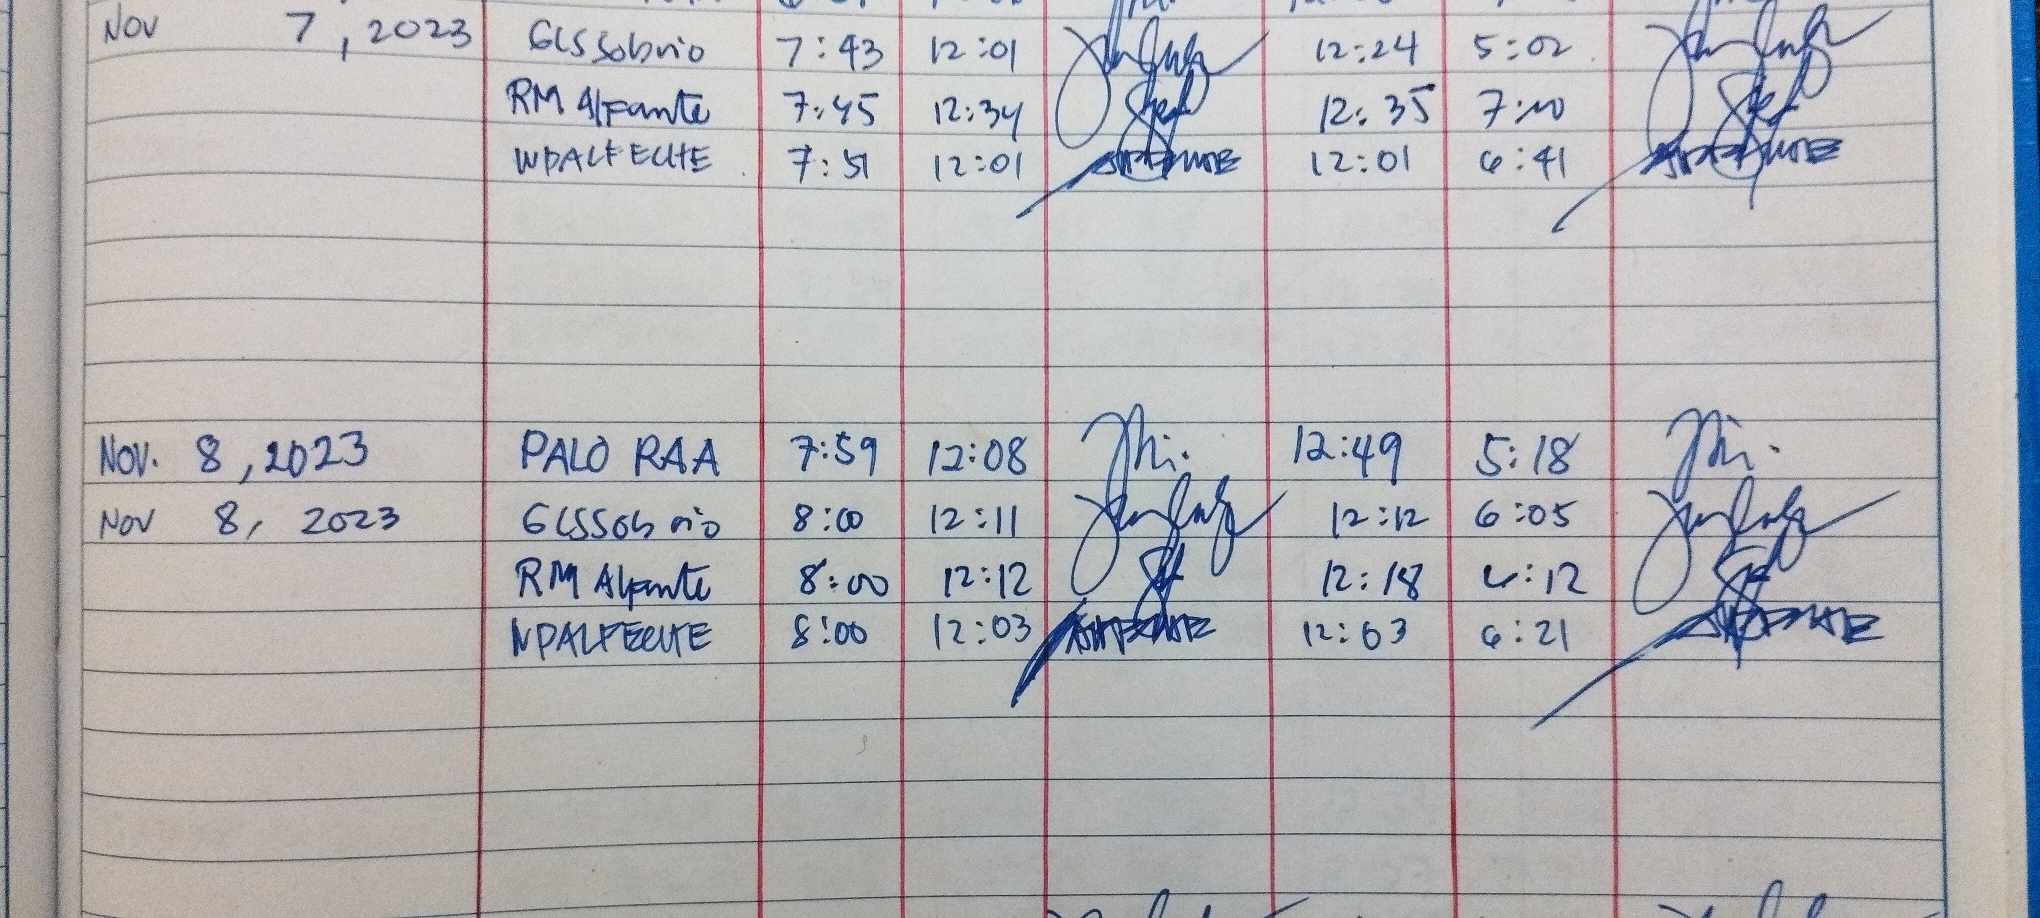 Nov 7, 2023 GLSSobrio 7:43 12:01 12:24 5:02
RM Alfante 7:45 12:34 12:35 7:10
NPALFECHE 7:51 12:01 12:01 6:41
Nov. 8, 2023 PALO RAA 7:59 12:08 12:49 5:18
Nov 8, 2023 GLSSobrio 8:00 12:11 12:12 6:05
RM Alfante 8:00 12:12 12:18 6:12
NPALFECHE 8:00 12:03 12:03 6:21